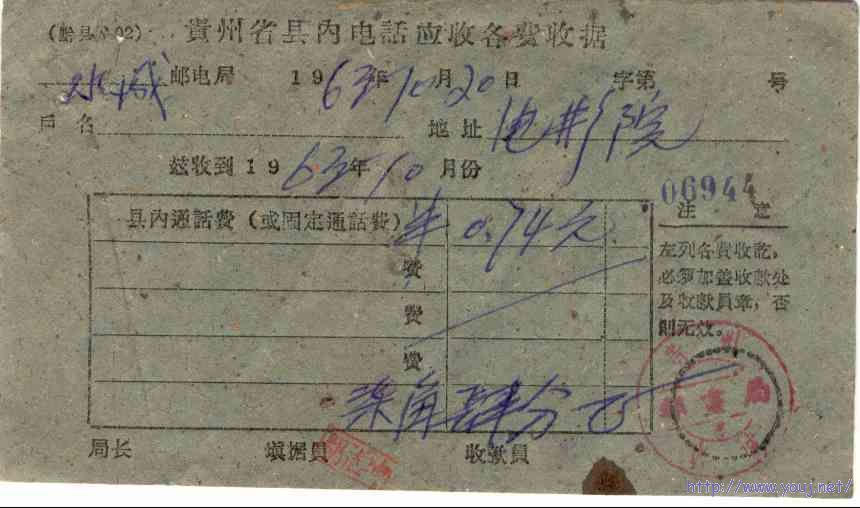 貴州省县內电話应收各費收据
水城 邮电局 1963年10月20日 字第 号
戶名 地址 电影院
兹收到1963年10月份
06944
注意
县內通話費(或固定通話費) 0.74元
左列各費收訖,
必須加盖收款处
及收款員章,否
則无效。
費
費
費
柒角肆分
局长 填据員 收款員
http://www.youj.net/